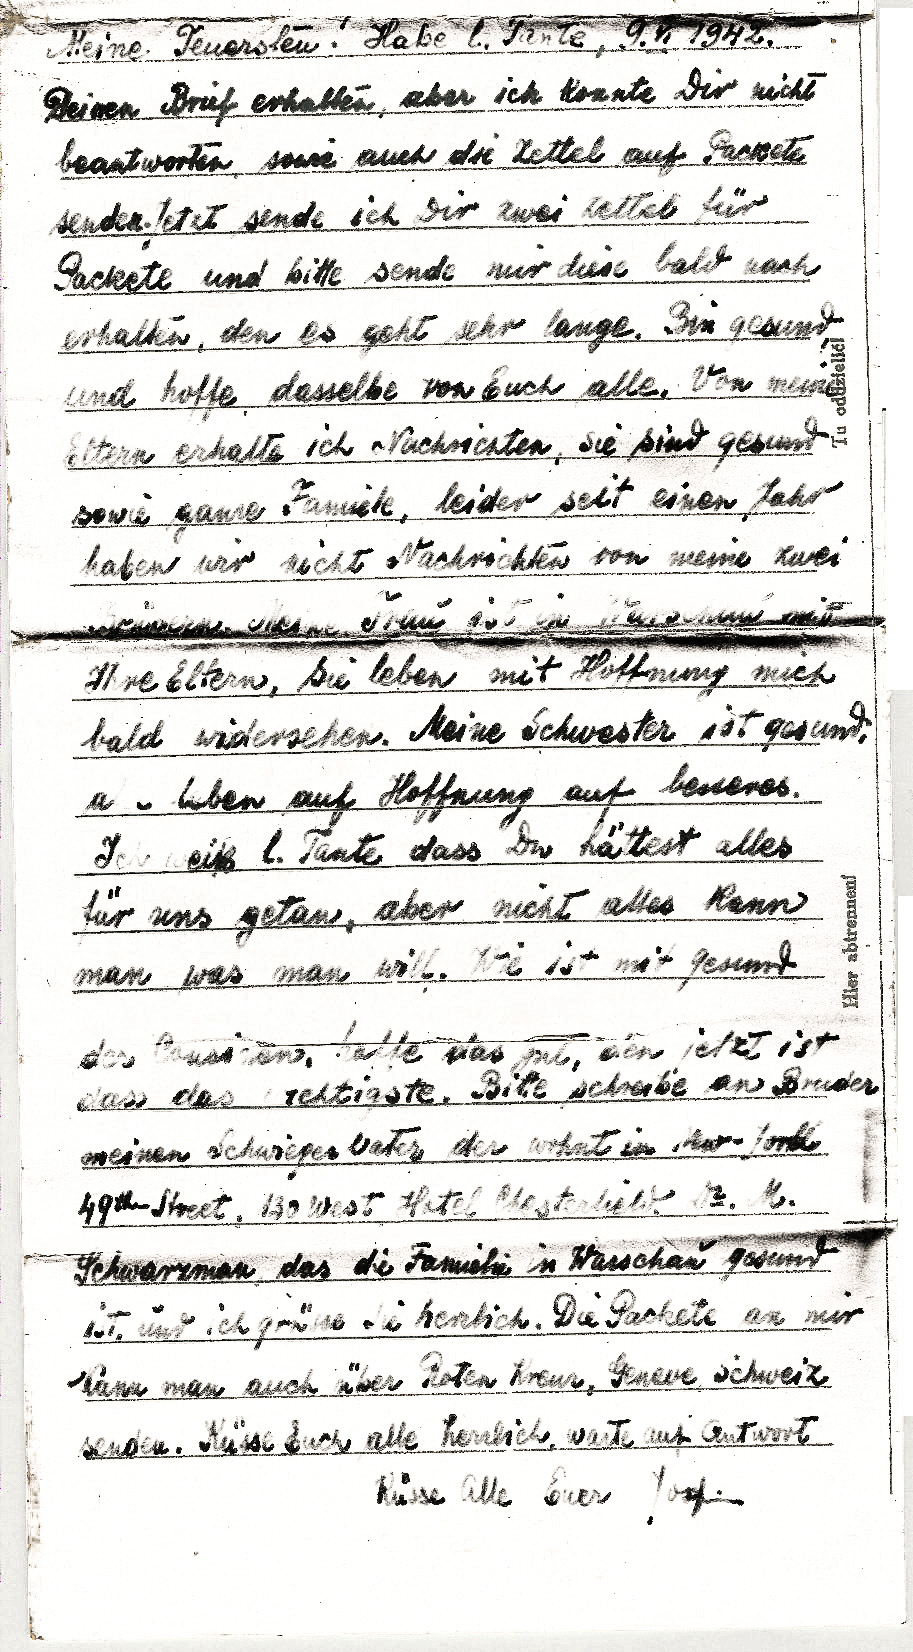 Meine Teuersten! Habe l. Tante, 9.V. 1942.
Deinen Brief erhalten, aber ich konnte Dir nicht
beantworten, sowie auch die Zettel auf Packete
senden. Jetzt sende ich Dir zwei Zettel für
Packete und bitte sende mir diese bald nach
erhalten, den es geht sehr lange. Bin gesund
und hoffe dasselbe von Euch alle. Von meine
Eltern erhalte ich Nachrichten, sie sind gesund
sowie ganze Familie, leider seit einen Jahr
haben wir nicht Nachrichten von meine zwei
Brüdern. Meine Frau ist in Warschau mit
Ihre Eltern, Sie leben mit Hoffnung mich
bald widersehen. Meine Schwester ist gesund,
leben auf Hoffnung auf besseres.
Ich weiß l. Tante dass Du hättest alles
für uns getan, aber nicht alles kann
man was man will. Wie ist mit gesund
der Cousinen, hoffe das gut, den jetzt ist
dass das wichtigste. Bitte schreibe an Bruder
meinen Schwieger Vater der wohnt in New-York
49th Street, 130 West Hotel Chesterfield. Dr. M.
Schwarzman das die Familie in Warschau gesund
ist, und ich grüsse Sie herzlich. Die Packete an mir
kann man auch über Roten Kreuz, Geneve Schweiz
senden. Küsse Euch alle herzlich, warte auf Antwort
Küsse Alle Euer Josef
Tu oddzielić!
Hier abtrennen!